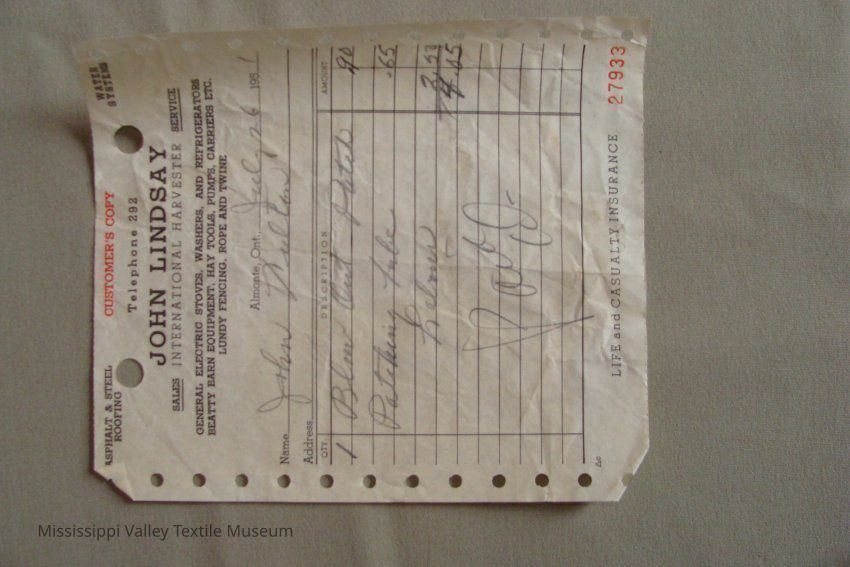 ASPHALT & STEEL ROOFING
CUSTOMER'S COPY
WATER SYSTEMS
Telephone 292
JOHN LINDSAY
SALES INTERNATIONAL HARVESTER SERVICE
GENERAL ELECTRIC STOVES, WASHERS, AND REFRIGERATORS
BEATTY BARN EQUIPMENT, HAY TOOLS, PUMPS, CARRIERS ETC.
LUNDY FENCING, ROPE AND TWINE
Almonte, Ont., July 26 1951
Name John
Address
QTY. DESCRIPTION AMOUNT
1 Blow Out Patch .90
Patching tube .65
Paid
LIFE and CASUALTY INSURANCE
27933
Mississippi Valley Textile Museum